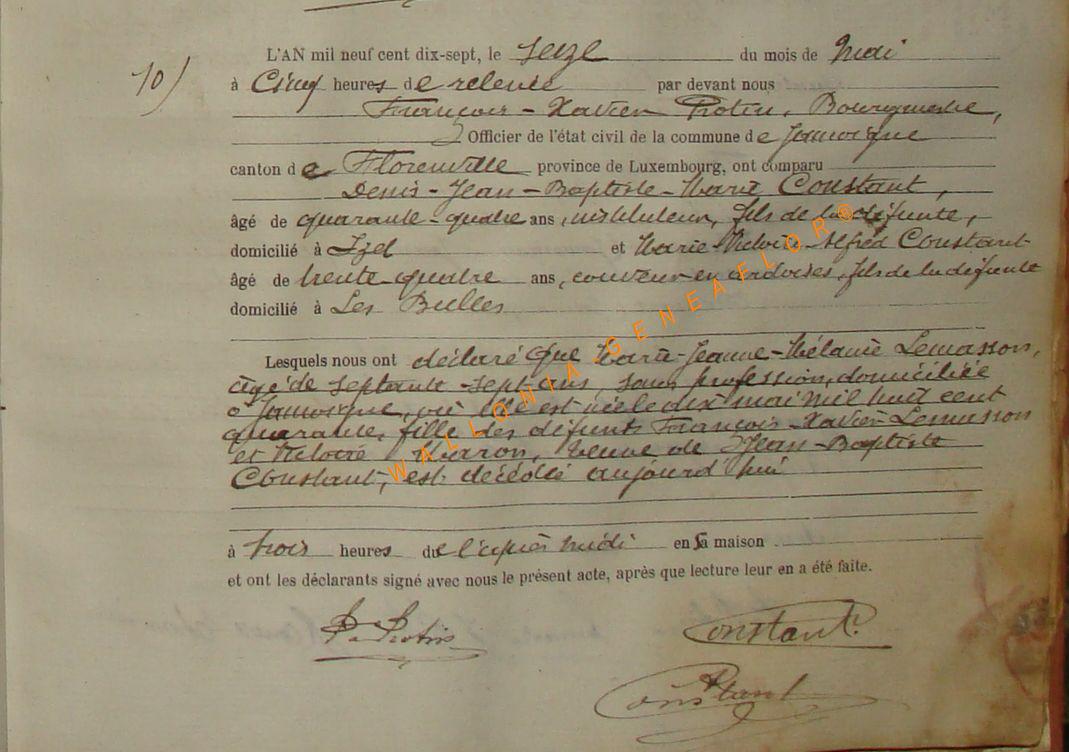 10)
L'AN mil neuf cent dix-sept, le seize du mois de Mai
à Cinq heures de relevée par devant nous
François-Xavier Protin, Bourgmestre,
Officier de l'état civil de la commune de Jamoigne
canton de Florenville province de Luxembourg, ont comparu
Denis-Jean-Baptiste-Marie Constant,
âgé de quarante-quatre ans, instituteur, fils de la défunte,
domicilié à Izel et Marie-Victoire-Alfred Constant
âgé de trente-quatre ans, couvreur en ardoises, fils de la défunte
domicilié à Les Bulles
Lesquels nous ont déclaré que Marie-Jeanne-Mélanie Lemasson,
âgé de septante-sept ans, sans profession, domiciliée
à Jamoigne, où elle est née le dix mai mil huit cent
quarante, fille des défunts François-Xavier Lemasson
et Victoire Maron, veuve de Jean-Baptiste
Constant, est décédée aujourd'hui
à trois heures de l'après midi en sa maison
et ont les déclarants signé avec nous le présent acte, après que lecture leur en a été faite.
Protin Constant
Constant
WALLONIA GENEAFLOR®